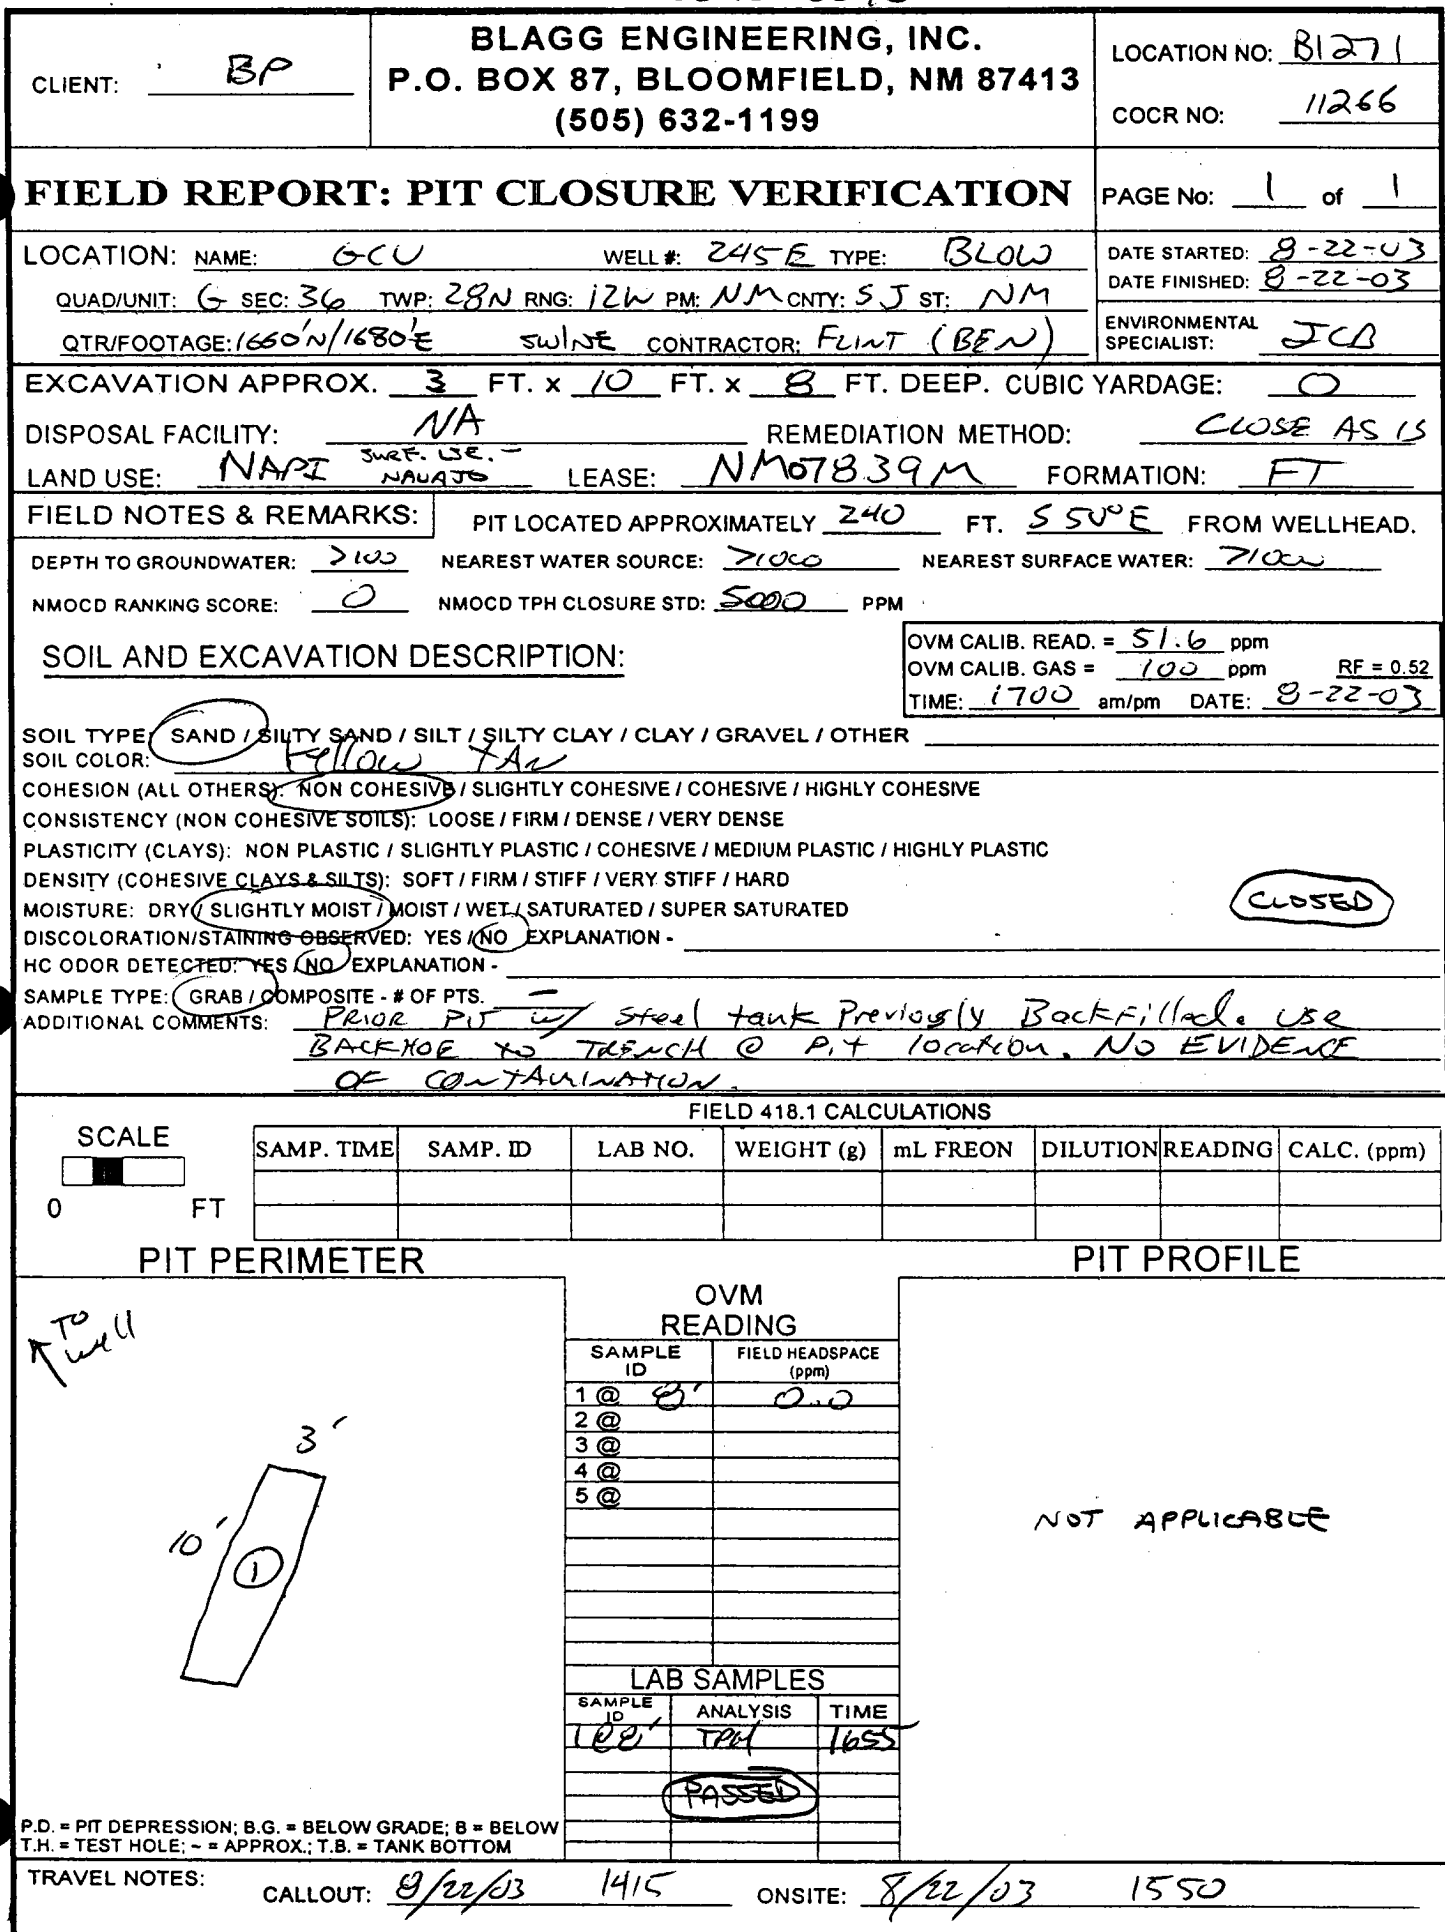 BLAGG ENGINEERING, INC.
P.O. BOX 87, BLOOMFIELD, NM 87413
(505) 632-1199
CLIENT: BP
LOCATION NO: B1271
COCR NO: 11266
FIELD REPORT: PIT CLOSURE VERIFICATION
PAGE No: 1 of 1
LOCATION: NAME: GCU WELL #: 245E TYPE: BLOW
QUAD/UNIT: G SEC: 36 TWP: 28N RNG: 12W PM: NM CNTY: SJ ST: NM
QTR/FOOTAGE: 1660'N/1680'E SW/NE CONTRACTOR: FLINT (BEN)
DATE STARTED: 8-22-03
DATE FINISHED: 8-22-03
ENVIRONMENTAL
SPECIALIST: JCB
EXCAVATION APPROX. 3 FT. x 10 FT. x 8 FT. DEEP. CUBIC YARDAGE: 0
DISPOSAL FACILITY: NA REMEDIATION METHOD: CLOSE AS IS
LAND USE: NAPI SURF. USE. - NAVAJO LEASE: NM07839M FORMATION: FT
FIELD NOTES & REMARKS: PIT LOCATED APPROXIMATELY 240 FT. S50°E FROM WELLHEAD.
DEPTH TO GROUNDWATER: >100 NEAREST WATER SOURCE: >1000 NEAREST SURFACE WATER: >1000
NMOCD RANKING SCORE: 0 NMOCD TPH CLOSURE STD: 5000 PPM
SOIL AND EXCAVATION DESCRIPTION:
OVM CALIB. READ. = 51.6 ppm
OVM CALIB. GAS = 100 ppm RF = 0.52
TIME: 1700 am/pm DATE: 8-22-03
SOIL TYPE: SAND / SILTY SAND / SILT / SILTY CLAY / CLAY / GRAVEL / OTHER
SOIL COLOR: Yellow TAN
COHESION (ALL OTHERS): NON COHESIVE / SLIGHTLY COHESIVE / COHESIVE / HIGHLY COHESIVE
CONSISTENCY (NON COHESIVE SOILS): LOOSE / FIRM / DENSE / VERY DENSE
PLASTICITY (CLAYS): NON PLASTIC / SLIGHTLY PLASTIC / COHESIVE / MEDIUM PLASTIC / HIGHLY PLASTIC
DENSITY (COHESIVE CLAYS & SILTS): SOFT / FIRM / STIFF / VERY STIFF / HARD
MOISTURE: DRY / SLIGHTLY MOIST / MOIST / WET / SATURATED / SUPER SATURATED
CLOSED
DISCOLORATION/STAINING OBSERVED: YES / NO EXPLANATION -
HC ODOR DETECTED: YES / NO EXPLANATION -
SAMPLE TYPE: GRAB / COMPOSITE - # OF PTS. -
ADDITIONAL COMMENTS: PRIOR PIT w/ steel tank Previously BackFilled. Use
BACKHOE to TRENCH @ Pit location. NO EVIDENCE
OF CONTAMINATION.
FIELD 418.1 CALCULATIONS
SCALE
0 FT
SAMP. TIME SAMP. ID LAB NO. WEIGHT (g) mL FREON DILUTION READING CALC. (ppm)
PIT PERIMETER
PIT PROFILE
To well
3'
10'
1
OVM
READING
SAMPLE ID FIELD HEADSPACE (ppm)
1 @ 8' 0.0
2 @
3 @
4 @
5 @
NOT APPLICABLE
LAB SAMPLES
SAMPLE ID ANALYSIS TIME
1@8' TPH 1655
PASSED
P.D. = PIT DEPRESSION; B.G. = BELOW GRADE; B = BELOW
T.H. = TEST HOLE; ~ = APPROX.; T.B. = TANK BOTTOM
TRAVEL NOTES: CALLOUT: 8/22/03 1415 ONSITE: 8/22/03 1550